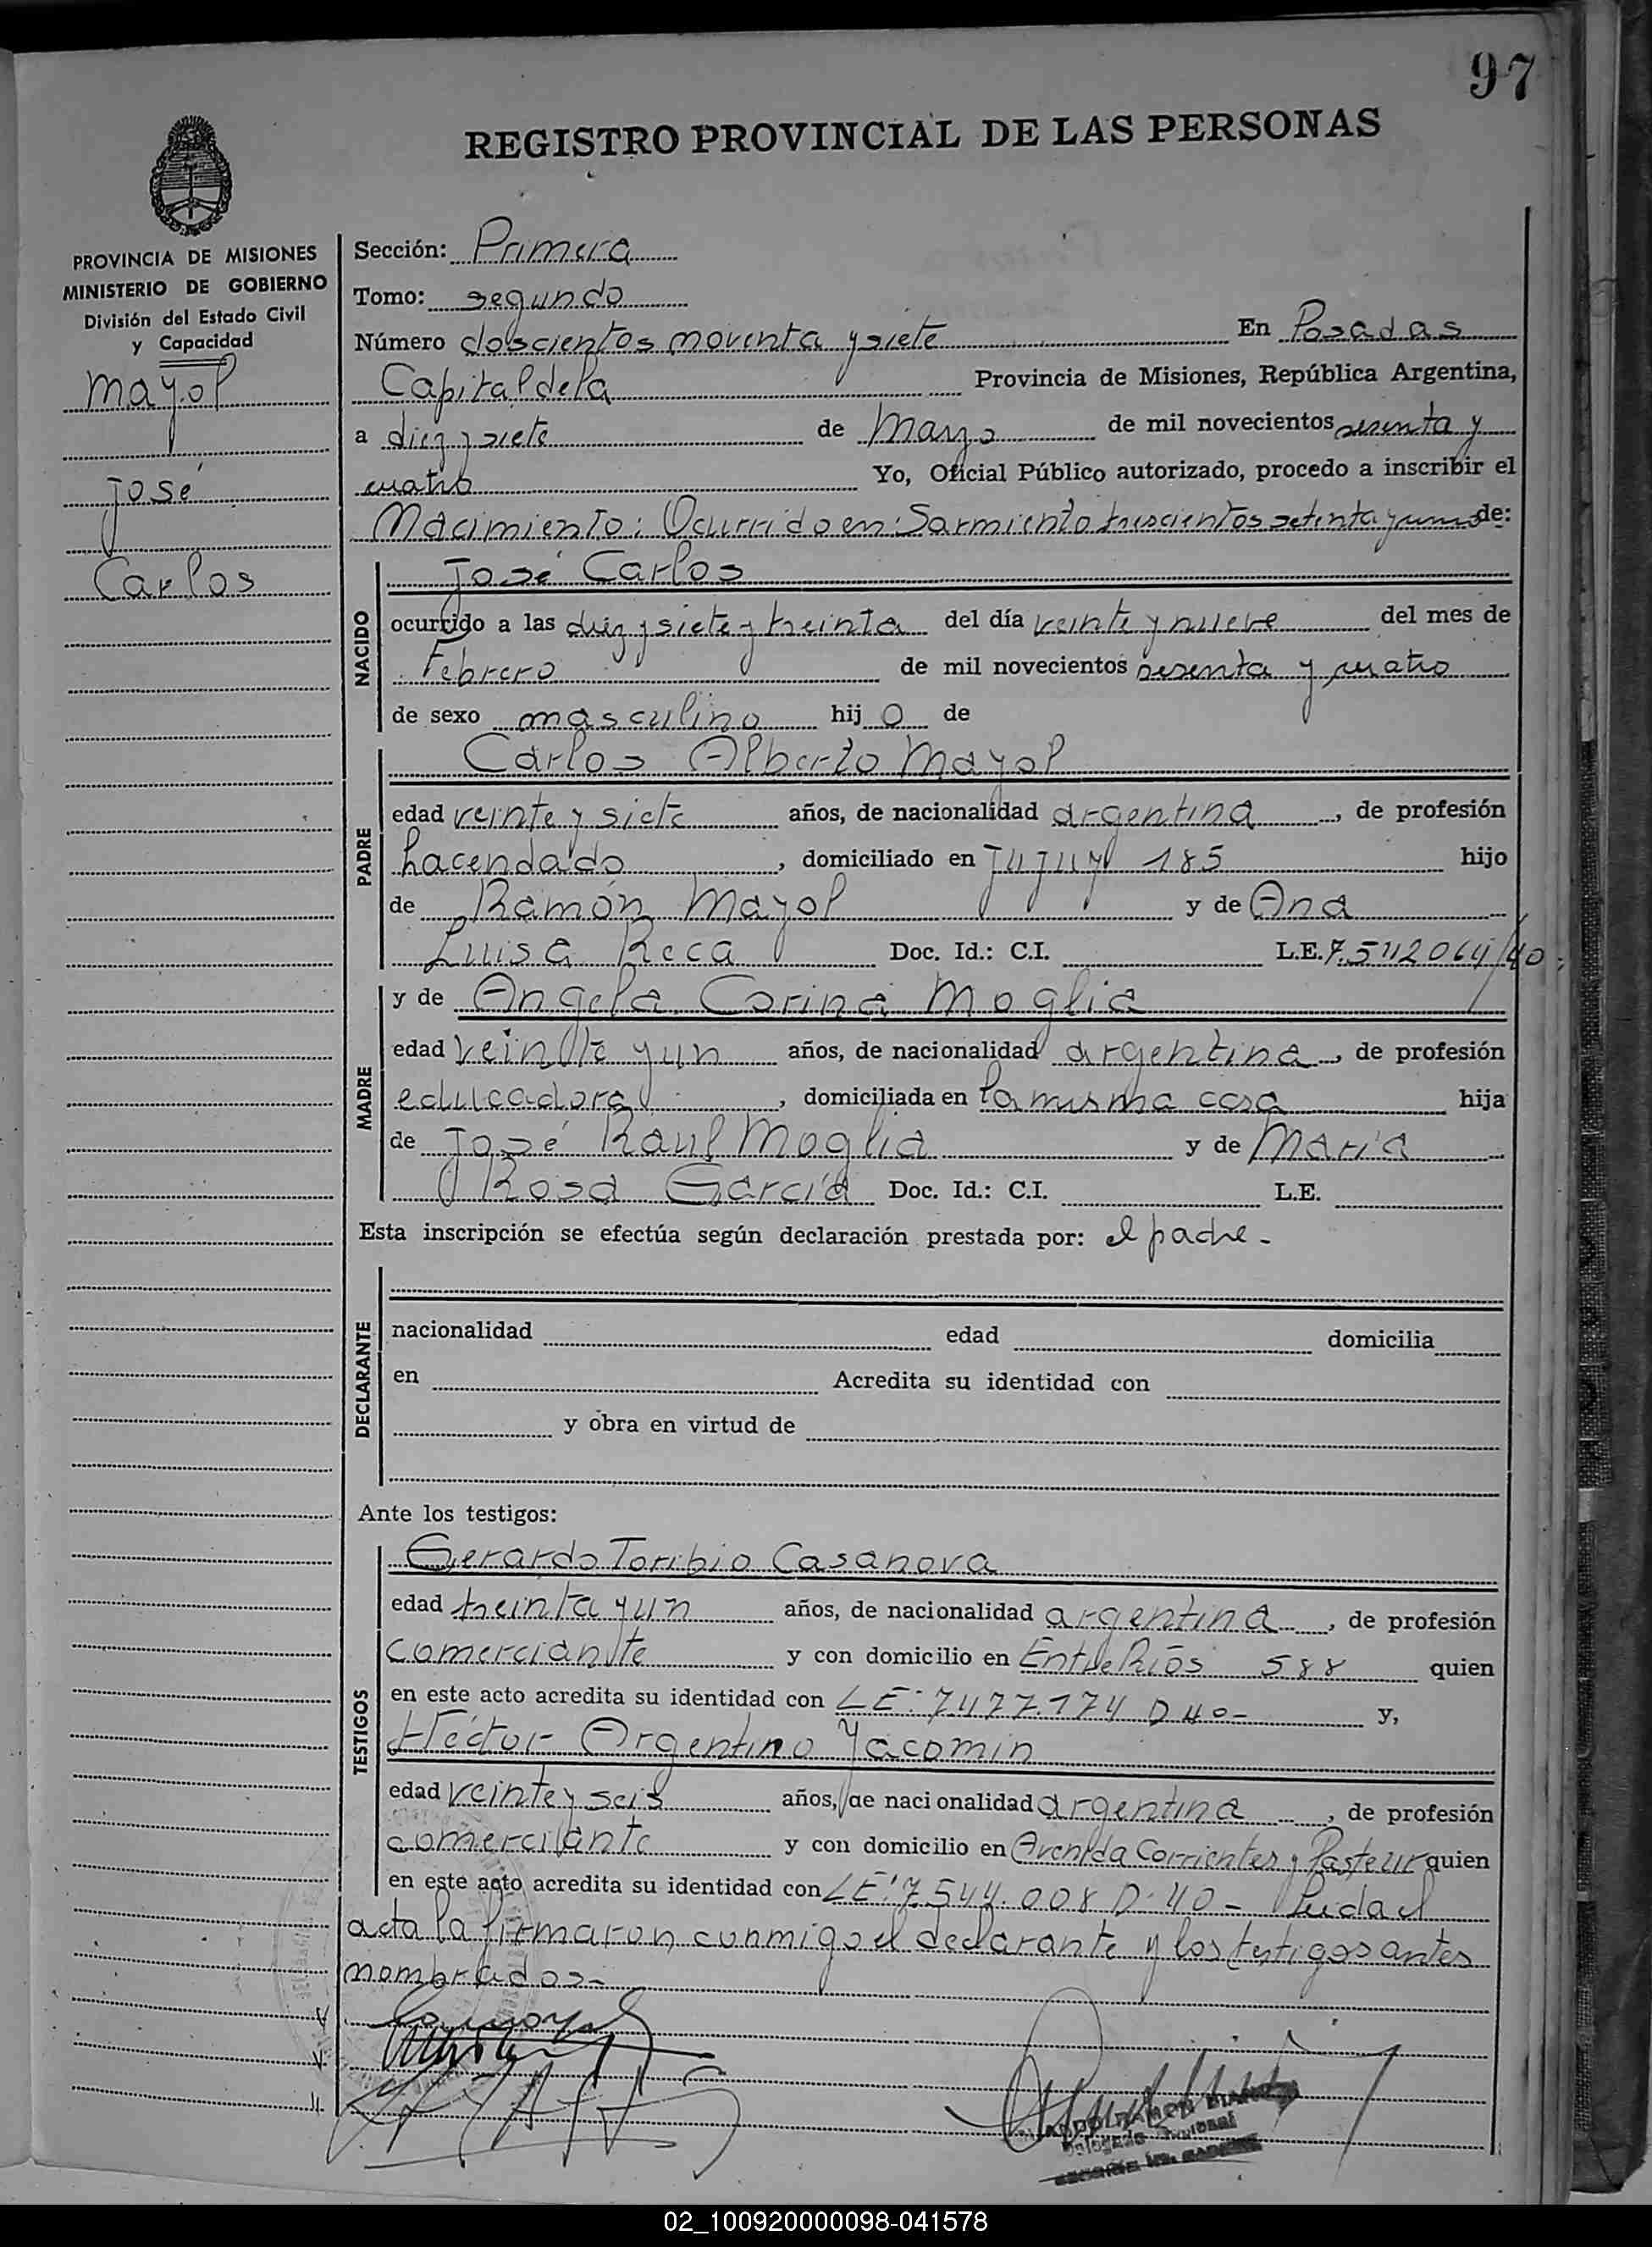 97
REGISTRO PROVINCIAL DE LAS PERSONAS
PROVINCIA DE MISIONES
MINISTERIO DE GOBIERNO
División del Estado Civil
y Capacidad
Mayol
José
Carlos
Sección: Primera
Tomo: segundo
Número doscientos noventa y siete En Posadas
Capital de la Provincia de Misiones, República Argentina,
a diez y siete de Marzo de mil novecientos sesenta y
cuatro Yo, Oficial Público autorizado, procedo a inscribir el
Nacimiento: Ocurrido en: Sarmiento trescientos setenta y uno de:
NACIDO
José Carlos
ocurrido a las diez y siete y treinta del día veinte y nueve del mes de
Febrero de mil novecientos sesenta y cuatro
de sexo masculino hijo de
PADRE
Carlos Alberto Mayol
edad veinte y siete años, de nacionalidad argentina, de profesión
hacendado, domiciliado en Jujuy 185 hijo
de Ramón Mayol y de Ana
Luisa Reca Doc. Id.: C.I. L.E. 7.542064/40;
MADRE
y de Angela Corina Moglia
edad veinte y un años, de nacionalidad argentina, de profesión
educadora, domiciliada en la misma casa hija
de José Raul Moglia y de María
Rosa García Doc. Id.: C.I. L.E.
Esta inscripción se efectúa según declaración prestada por: el padre.-
DECLARANTE
nacionalidad edad domicilia
en Acredita su identidad con
y obra en virtud de
Ante los testigos:
TESTIGOS
Gerardo Toribio Casanova
edad treinta y un años, de nacionalidad argentina, de profesión
comerciante y con domicilio en Entre Ríos 588 quien
en este acto acredita su identidad con LE: 7477.174 D 40- y,
Héctor Argentino Yacomin
edad veinte y seis años, de nacionalidad argentina, de profesión
comerciante y con domicilio en Avenida Corrientes y Pasteur quien
en este acto acredita su identidad con LE: 7.544.008 D. 40- Leida el
acta la firmaron conmigo el declarante y los testigos antes
nombrados-
02_100920000098-041578